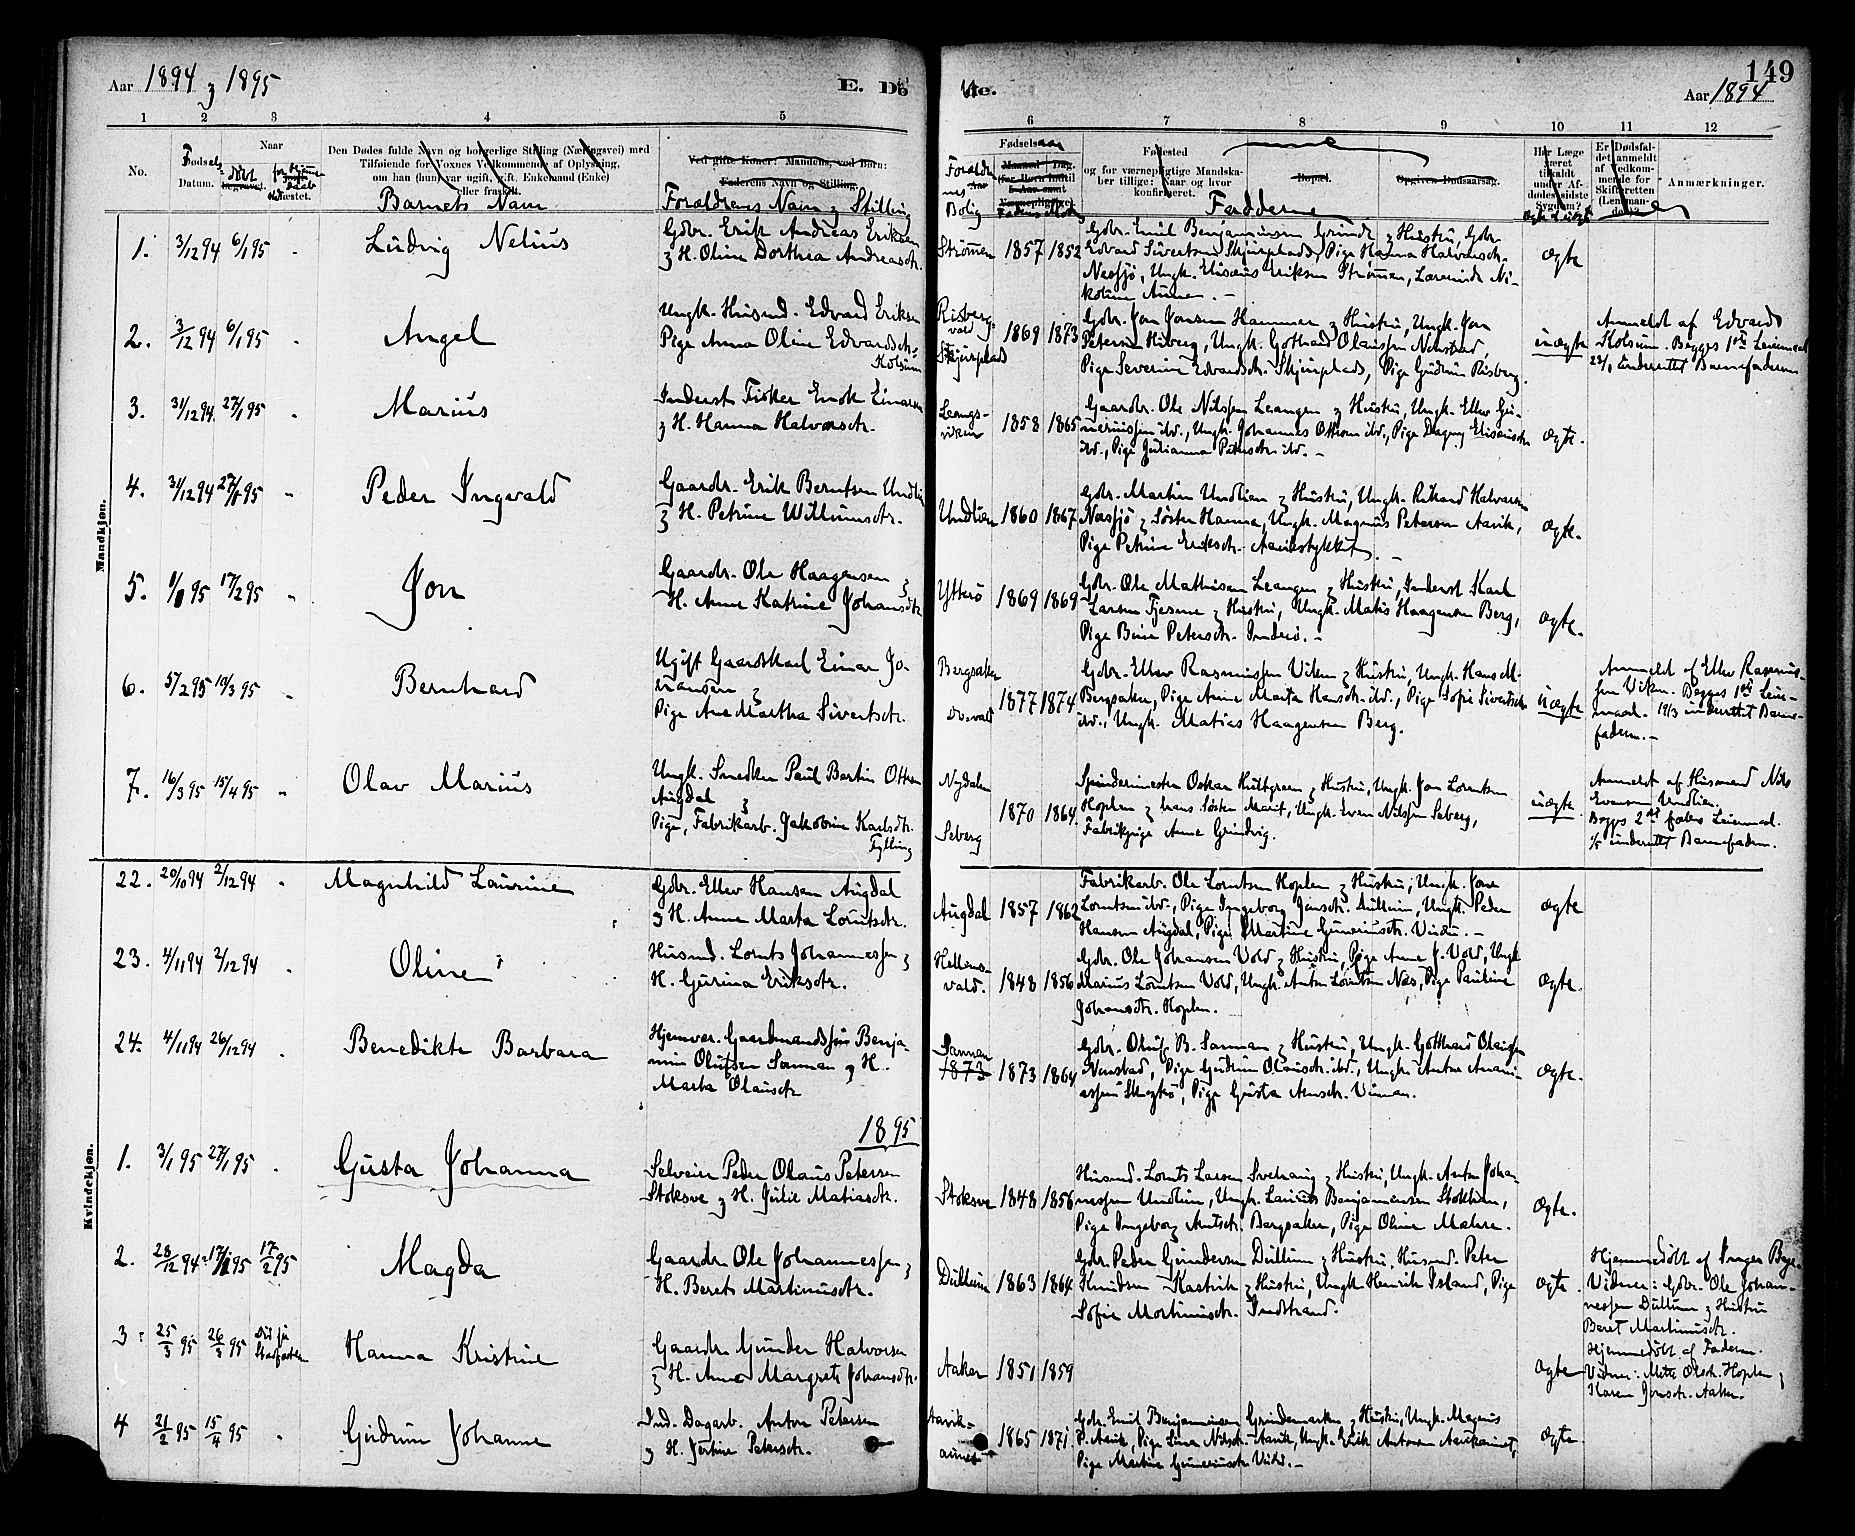 Aar 1894 & 1895
E. Dö
de.
149
Aar 1894
1 2 3 4 5 6 7 8 9 10 11 12
No.
Fødsels Datum.
Naar
døbt
begravet.
Den Dødes fulde Navn og borgerlige Stilling (Næringsvei) med
Tilføiende for Voxnes Vedkommende af Oplysning,
om han (hun) var ugift, gift, Enkemand (Enke)
eller fraskilt.
Barnets Navn
Ved gifte Koner: Mandens, ved Børn:
Faderens Navn og Stilling.
Forældrenes Navn & Stilling
Forældrenes Bolig
Fødselsaar
Faders Moders
Fødested
og for værnepligtige Mandskaber tillige: Naar og hvor
konfirmeret.
Bopæl.
Opgiven Dødsaarsag.
Fadderne
Har Læge
været
tilkaldt
under Af-
dødes sidste
Sygdom?
Er Dødsfal-
det anmeldt
af Vedkom-
mende for
Skifteretten
(Lensman-
den)?
Anmærkninger.
Mandkjøn.
1. 3/12 94 6/1 95 Ludvig Nelius
Gdbr. Erik Andreas Eriksen
& H. Oline Dorthea Andreasdtr.
Strømmen 1857 1852
Gdbr. Emil Benjaminsen Grinde & Hustru, Gdbr.
Edvard Sivertsen Skjerplads, Pige Hanna Halvorsdtr.
Næssjö, Ungk. Elisæus Eriksen Strømmen, Lærerinde Ni-
koline Aunen. -
ægte
2. 3/12 94 6/1 95 Angel
Ungk. Husmd. Edvard Eriksen
Pige Anna Oline Edvardsdtr.
Kolsum
Risberg-
vald
Skjerplads 1869 1873
Gdbr. Jon Jonsen Hammer & Hustru, Ungk. Jon
Petersen Hiberg, Ungk. Gotthard Olaussen Nenstad,
Pige Severine Edvardsdtr. Skjerplads, Pige Gudrun Risberg.
uægte
Anmeldt af Edvard
Kolsum. Begges 1ste Leiermaal
23/1 underrettet Barnefaderen
3. 31/12 94. 27/1 95 Marius
Inderst Fisker Enok Einarsen
& H. Hanna Halvorsdtr.
Leangs-
viken 1858 1865
Gaardbr. Ole Nilssen Leangen & Hustru, Ungk. Ellev Gu-
neriussen ibd., Ungk. Johannes Ottesen ibd., Pige Dagny Eliseusdtr.
ibd., Pige Julianna Petersdtr. ibd. -
ægte.
4. 31/12 94 27/1 95 Peder Ingvald
Gaardbr. Erik Berntsen Undlien
& H. Petrine Willumsdtr.
Undlien 1860 1867
Gdbr. Martin Undlien & Hustru, Ungk. Rikard Halvorsen
Næssjö & Söster Hanna, Ungk. Magnus Petersen Aavik,
Pige Petrine Eriksdtr. Aavikstykket. -
ægte.
5. 1/1 95 17/2 95 Jon
Gaardbr. Ole Haagensen &
H. Anne Katrine Johansdtr.
Ytterö 1869 1869
Gdbr. Ole Mathisen Leangen & Hustru, Inderst Karl
Larsen Fjesme & Hustru, Ungk. Matis Haagensen Berg,
Pige Petersdtr. Inderö. -
ægte.
6. 5/2 95 10/3 95 Bernhard
Ugift Gaardskarl Einar Jo-
hansen &
Pige Ane Martha Sivertsdtr.
Bergsaker
Overvald 1877 1874
Gdbr. Ellev Rasmussen Viken & Hustru, Ungk. Hans M.
Bergsaker, Pige Anne Marta Hansdtr. ibd., Pige Sofie Sivertsdtr.
ibd., Ungk. Matias Haagensen Berg.
uægte
Anmeldt af Ellev Rasmus-
sen Viken. Begges 1ste Leier-
maal. 19/3 underrettet Barne-
faderen. -
7. 16/3 95 15/4 95 Olav Marius
Ungk. Snedker Paul Bertin Ottesen
Augdal &
Pige, Fabrikarb. Jakobine Karlsdtr.
Fylling
Nydalen
Seberg 1870 1864.
Spindemester Oskar Hultgreen & Hustru, Ungk. Jon Lorentsen
Hoplen & hans Söster Marit, Ungk. Even Nilssen Seberg,
Fabrikpige Anne Grindvig.
uægte.
Anmeldt af Husmand Nils
Evensen Undlien.
Begges 2det fælles Leiermaal.
1/5 underrettet Barnefaderen.
Kvindekjøn.
22. 20/10 94 2/12 94 Magnhild Laurine
Gdbr. Ellev Hansen Augdal
& H. Anne Marta Lorntsdtr.
Augdal 1857 1862
Fabrikarb. Ole Lorntsen Hoplen & Hustru, Ungk. Jone
Lorntsen ibd., Pige Ingeborg Jensdtr. Dullum, Ungk. Peder
Hansen Augdal, Pige Martine Guneriusdtr. Vudu. -
ægte
23. 4/11 94 2/12 94 Oline
Husmd. Lornts Johannessen &
H. Gurina Eriksdtr.
Hellems-
vald. 1848 1856
Gdbr. Ole Johansen Vold & Hustru, Pige Anne J. Vold, Ungk.
Marius Lorntsen Vold, Ungk. Anton Lorntsen Næs, Pige Pauline
Johansdtr. Hoplen.
ægte.
24. 4/11 94 26/12 94 Benedikte Barbara
Hjemvær. Gaardmandssøn Benja-
min Olufsen Sannan & H.
Marta Olausdtr
Sannan
1873 1873 1864
Gdbr. Oluf B. Sannan & Hustru, Ungk. Gotthard Olaussen
Nenstad, Pige Gudrun Olausdtr. ibd., Ungk. Anton Anani-
assen Skogkö, Pige Gusta Arnsdtr. Vinnan.
ægte.
1895
1. 3/1 95 27/1 95 Gusta Johanna
Selveier Peder Olaus Petersen
Stoksve & H. Julie Matiasdtr.
Stoksve 1848 1856
Husmd. Lornts Larsen Svehaug & Hustru, Ungk. Anton Joha-
nessen Undlien, Ungk. Laurits Benjaminsen Stokkan,
Pige Ingeborg Arntsdtr. Bergsaker, Pige Oline Mahre.
ægte.
2. 28/12 94 17/1 95 17/2 95 Magda
Gaardbr. Ole Johannessen &
H. Beret Martinusdtr.
Dullum 1863 1864
Gdbr. Peder Gundersen Dullum & Hustru, Husmd. Peter
Knudsen Kastvik & Hustru, Ungk. Henrik Island, Pige
Sofie Martinusdtr. Indstrand.
ægte.
Hjemmedöbt af Inger Bye.
Vidner: Gdbr. Ole Johan-
nessen Dullum & Hustru
Beret Martinusdtr.
3. 25/3 95 26/3 95 Död før
Stadfæstn
Hanna Kristine
Gaardbr. Gunder Halvorsen
& H. Anne Margrete Johansdtr.
Aaker 1851 1859
ægte
Hjemmedöbt af Faderen.
Vidner: Mette Olsdtr. Hoplen &
Karen Jonsdtr. Aaker.
4 21/2 95 15/4 95 Gudrun Johanne
Ind. Dagarb. Anton Petersen
& H. Jertine Petersdtr.
Aavik-
aunet 1865 1871.
Gdbr. Emil Benjaminsen Grindemarken & Hustru, Ungk. Magnus
P. Aavik, Pige Lina Nilsdtr. Aavik, Ungk. Erik Antonsen Aavikaunet,
Pige Martine Guneriusdtr. Vudu. -
ægte.